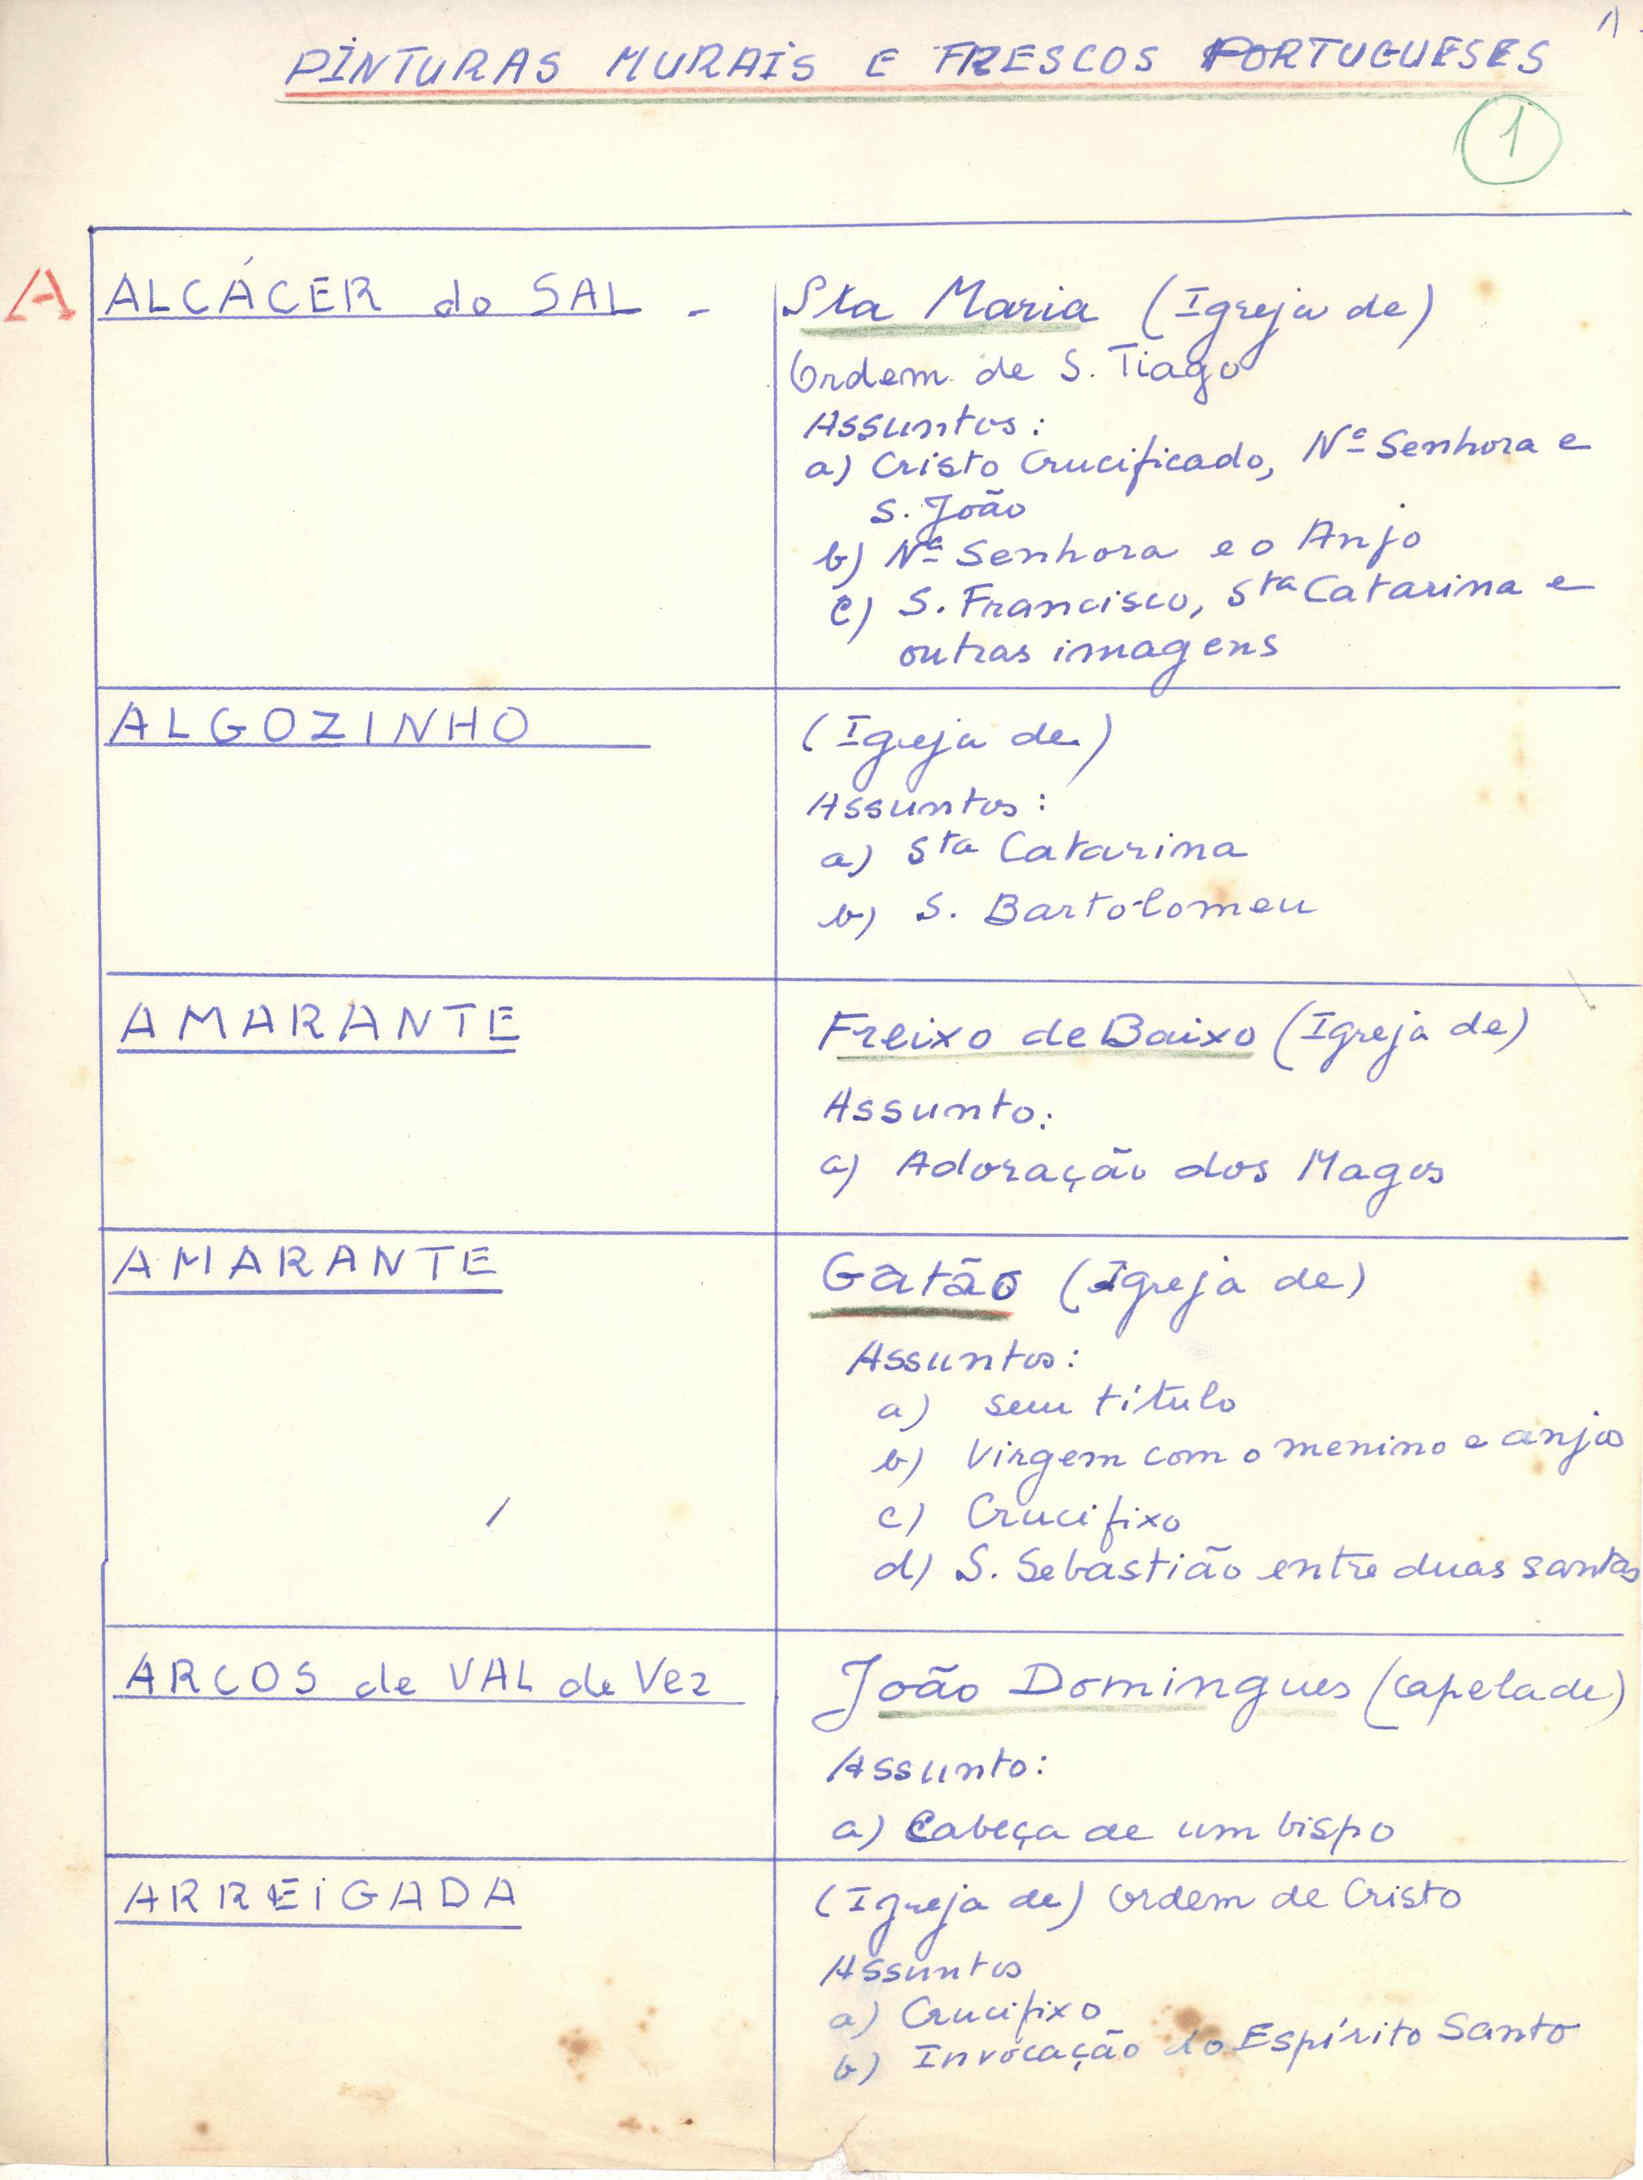 1)
PINTURAS MURAIS E FRESCOS PORTUGUESES
1
A
ALCÁCER do SAL - Sta Maria (Igreja de)
Ordem de S. Tiago
Assuntos:
a) Cristo Crucificado, Nª Senhora e
S. João
b) Nª Senhora e o Anjo
c) S. Francisco, Sta Catarina e
outras imagens
ALGOZINHO (Igreja de)
Assuntos:
a) Sta Catarina
b) S. Bartolomeu
AMARANTE Freixo de Baixo (Igreja de)
Assunto:
a) Adoração dos Magos
AMARANTE Gatão (Igreja de)
Assuntos:
a) sem título
b) Virgem com o menino e anjos
c) Crucifixo
d) S. Sebastião entre duas santas
ARCOS de VAL de Vez João Domingues (capela de)
Assunto:
a) Cabeça de um bispo
ARREIGADA (Igreja de) Ordem de Cristo
Assuntos
a) Crucifixo
b) Invocação do Espírito Santo